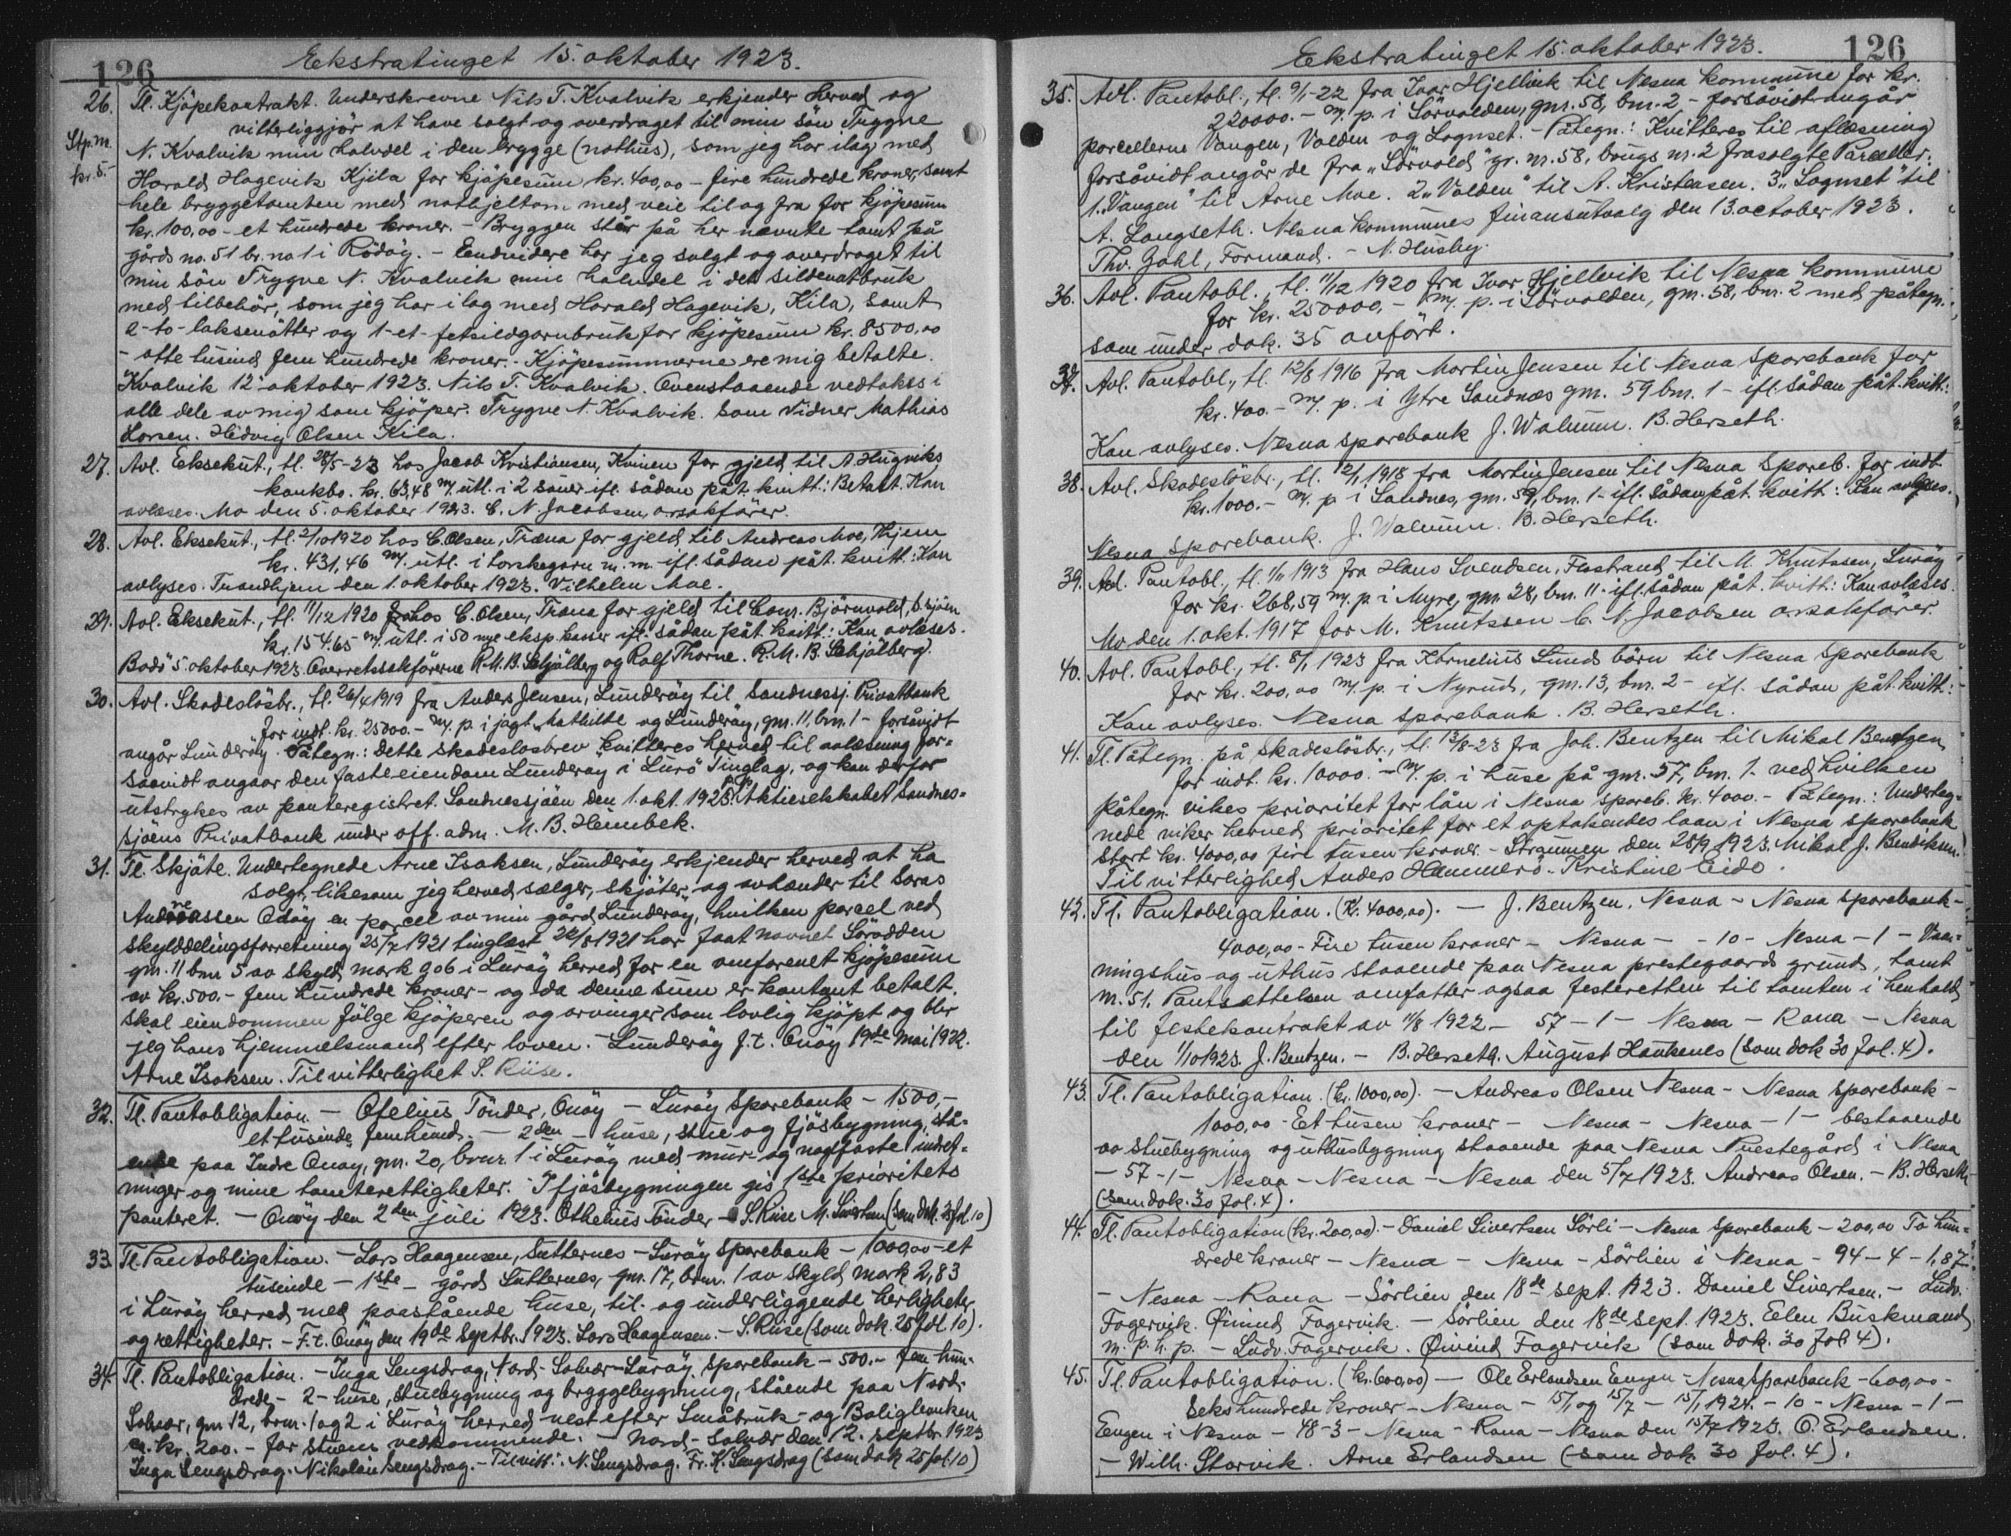 126
Ekstratinget 15. oktober 1923.
26. Tl. Kjöpekontrakt. Underskrevne Nils T. Kvalvik erkjender herved og
vitterliggjör at have solgt og overdraget til min sön Tryggne
Stp.m. kr. 5.-
N. Kvalvik min halvdel i den brygge (nothus), som jeg har ilag med
Harald Hagevik Kjila for kjöpesum kr. 400,00 - fire hundrede kroner, samt
hele bryggetomten med nothjeltom med veie til og fra for kjöpesum
kr. 100,00 - et hundrede kroner. - Bryggen står på her nævnte tomt på
gårds no. 51 br. no 1 i Rödöy. - Endvidere har jeg solgt og overdraget til
min sön Trygve N. Kvalvik min halvdel i det sildenotbruk
med tilbehör, som jeg har i lag med Harald Hagevik, Kila, samt
2 - to - laksenötter og 1 - et - fetsildgarnbruk for kjöpesum kr. 8500,00
- otte tusind fem hundrede kroner. - Kjöpesummerne ere mig betalte.
Kvalvik 12 oktober 1923. Nils T. Kvalvik. Ovenstaaende vedtakes i
alle dele av mig som kjöper. Trygve N. Kvalvik. Som Vidner Mathias
Larsen. Hedvig Olsen Kila.
27. Avl. Eksekut., tl. 28/5-23 hos Jacob Kristiansen, Kvinen for gjeld til A. Hugviks
konkbo. kr. 63,48 m/ utl. i 2 sauer ifl. sådan påt. kvitt.: Betalt. Kan
avlæses. Mo den 5. oktober 1923. C. N. Jacobsen o.rsakförer.
28. Avl. Eksekut., tl. 2/10 1920 hos C. Olsen, Træna for gjeld til Andreas Moe, Thjem
kr. 431,46 m/ utl. i torskegarn m.m. ifl. sådan påt. kvitt.: Kan
avlyses. Trondhjem den 1. oktober 1923. Vilhelm Moe.
29. Avl. Eksekut., tl. 11/12 1920 hos C. Olsen, Træna for gjeld til Conr. Björnvold, Brjöen
kr. 1545.65 m/ utl. i 50 nye eksp. kasser ifl. sådan påt. kvitt.: Kan avlæses.
Bodö 5. oktober 1923. Overretssakförerne R. M. B. Schjölberg og Rolf Thorne. R. M. B. Schjölberg.
30. Avl. Skadeslösbr., tl. 26/4 1919 fra Anders Jensen, Lunderöy til Sandnessj. Privatbank
for indt. kr. 25000.- m/ p. i jagt "Mathilde" og Lunderöy, gnr. 11, bnr. 1 - forsåvidt
angår Lunderöy. Påtegn.: Dette skadeslösbrev kvitteres herved til avlæsning for-
saavidt angaar den faste eiendom Lunderöy i Lurö Tinglag, og kan derfor
utstrykes av panteregistret. Sandnessjöen den 1. okt. 1923. Aktieselskabet Sandnes-
sjöens Privatbank under off. adm. M. B. Heimbek.
31. Tl. Skjöte. Undertegnede Arne Isaksen, Lunderöy, erkjender herved at ha
solgt, likesom jeg herved sælger, skjöter og avhænder til Soras
Andreassen Odöy en parcel av min gård Lunderöy, hvilken parcel ved
skylddelingsforretning 25/7 1921 tinglæst 22/8 1921 har faat navnet Sörodden
gnr. 11 bnr 5 av skyld mark 0,06 i Luröy herred for en omforenet kjöpesum
av kr. 500.- fem hundrede kroner - og da denne sum er kontant betalt,
skal eiendommen fölge kjöperen og arvinger som lovlig kjöpt og blir
jeg hans hjemmelsmand efter loven. - Lunderöy f. t. Onöy 19de Mai 1922.
Arne Isaksen. Til vitterlighet S. Riise.
32. Tl. Pantobligation - Ofelius Tönder, Onöy - Luröy Sparebank - 1500,-
et tusinde femhund. - 2den - huse, stue og fjösbygning, stå-
ende paa Indre Onöy, gnr. 20, bnr 1 i Luröy med mur- og nagfaste indret-
ninger og mine tomterettigheter. I fjösbygningen gis 1ste prioritets
panteret. - Onöy den 2den juli 1923. Othelius Tönder - S. Riise M. Sivertsen (som dok. 25 fol. 10)
33. Tl. Pantobligation. - Lars Haagensen, Sutternes - Luröy Sparebank - 1000,00 - et
tusinde - 1ste - gård Sutternes, gnr. 17, bnr. 1 av skyld mark 2,83
i Luröy herred med paastående huse, til- og underliggende herligheter
og rettigheter. - F. t. Onöy den 19de Septbr. 1923. Lars Haagensen. - S. Riise (som dok 25 fol. 10).
34. Tl. Pantobligation. - Inga Lengsdrag, Nord-Solvær - Luröy Sparebank - 500.- fem hun-
drede - 2 - huse, stuebygning og bryggebygning, stående paa Nord-
Solvær, gnr 12, bnr. 1 og 2 i Luröy herred - nest efter Småbruk- og Boligbanken
er kr. 200.- for stuens vedkommende. - Nord-Solvær den 12. septbr. 1923
Inga Lengsdrag. Nikolai Lengsdrag. - Til vitt.: N. Lengsdrag. Fr. K. Lengsdrag (som dok 25 fol. 10)
Ekstratinget 15. oktober 1923.
126
35. Avl. Pantobl., tl. 9/1-22 fra Ivar Hjellvik til Nesna kommune for kr.
220000.- m/ p. i Sörvolden, gnr. 58, bnr. 2 - forsåvidt angår
parcellerne Vangen, Volden og Lognset. - Påtegn.: Kvitteres til aflæsning
forsåvidt angår de fra "Sörvold" gr. nr. 58, brugs nr. 2 frasolgte Parceller:
1. "Vangen" til Arne Moe. 2. "Volden" til A. Kristensen. 3. "Lognset" til
A. Langseth. Nesna kommunes finansutvalg den 13. october 1923.
Thv. Zahl, Formand. - N. Husby.
36. Avl. Pantobl., tl. 11/12 1920 fra Ivar Hjellvik til Nesna kommune
for kr. 250000,- m/ p. i Sörvolden, gnr. 58, bnr. 2 med påtegn.
som under dok. 35 anfört.
37. Avl. Pantobl., tl. 12/8 1916 fra Martin Jensen til Nesna Sparebank for
kr. 400.- m/ p. i Ytre Sandnæs gnr. 59 bnr. 1 - ifl. sådan påt. kvitt:
Kan avlyses. Nesna sparebank J. Walnum. B. Herseth.
38. Avl. Skadeslösbr., tl. 12/1 1918 fra Martin Jensen til Nesna Spareb. for indt.
kr. 1000.- m/ p. i Sandnes, gnr. 59, bnr. 1 - ifl. sådan påt. kvitt.: Kan avlyses.
Nesna sparebank. J. Walnum. B. Herseth.
39. Avl. Pantobl., tl. 1/11 1913 fra Hans Svendsen, Fastrand til M. Knutssen, Luröy
for kr. 268,59 m/ p. i Myre, gnr. 28, bnr. 11 - ifl. sådan påt. kvitt.: Kan avlæses.
Mo den 1. okt. 1917 for M. Knutssen C. N. Jacobsen o.rsakförer.
40. Avl. Pantobl., tl. 8/1 1923 fra Kornelius Lunds börn til Nesna Sparebank
for kr. 200,00 m/ p. i Nyrud, gnr. 13, bnr. 2 - ifl. sådan påt. kvitt.:
Kan avlyses. Nesna sparebank. B. Herseth.
41. Tl. Påtegn. på skadeslösbr., tl. 13/8-23 fra Joh. Bentzen til Mikal Bentzen
for indt. kr. 10000.- m/ p. i huse på gnr. 57, bnr. 1. ved hvilken
påtegn. vikes prioritet for lån i Nesna spareb. kr. 4000.- Påtegn.: Underteg-
nede viker herved prioritet for et optakendes laan i Nesna sparebank
stort kr. 4000,00 fire tusen kroner. - Straumen den 28/9 1923. Mikal J. Bendiksen.
Til vitterlighed Anders Hammerö. Kristine Eido.
42. Tl. Pantobligation. (Kr. 4000,00). - J. Bentzen. Nesna - Nesna sparebank -
4000,00 - Fire tusen kroner - Nesna - - 10 - Nesna - 1 - Vaa-
ningshus og uthus staaende paa Nesna prestegaards grund, tomt
nr. 51. Pantsættelsen omfatter ogsaa festeretten til tomten i henhold
til festekontrakt av 11/8 1922 - 57 - 1 - Nesna - Rana - Nesna
den 1/10 1923. J. Bentzen. - B. Herseth. August Haukenes (som dok 30 fol. 4).
43. Tl. Pantobligation. (kr. 1000,00). - Andreas Olsen Nesna - Nesna sparebank -
1000,00 - Et tusen kroner - Nesna - Nesna - 1 - bestaaende
av stuebygning og uthusbygning staaende paa Nesna Prestegård i Nesna
- 57 - 1 - Nesna - Nesna - Nesna den 5/7 1923. Andreas Olsen. - B. Herseth
(som dok. 30 fol. 4).
44. Tl. Pantobligation (kr. 200,00). - Daniel Sivertsen Sörli - Nesna Sparebank - 200,00 To hun-
drede kroner - Nesna - Nesna - Sörlien i Nesna - 94 - 4 - 1,87
- Nesna - Rana - Sörlien den 18de sept. 1923. Daniel Sivertsen. - Ludv.
Fagervik. Öivind Fagervik. - Sörlien den 18de sept. 1923. Elen Buskmand
m. p. h. p. - Ludv. Fagervik. Öivind Fagervik (som dok. 30 fol. 4).
45. Tl. Pantobligation. (kr. 600,00) - Ole Erlandsen Engen - Nesna Sparebank - 600,00 -
Seks hundrede kroner - Nesna - 15/1 og 15/7 - 15/1 1924. - 10 - Nesna - 1 -
Engen i Nesna - 48 - 3 - Nesna - Rana - Nesna den 15/7 1923. O. Erlandsen.
- Wilh. Storvik. Arne Erlandsen (som dok. 30 fol. 4).